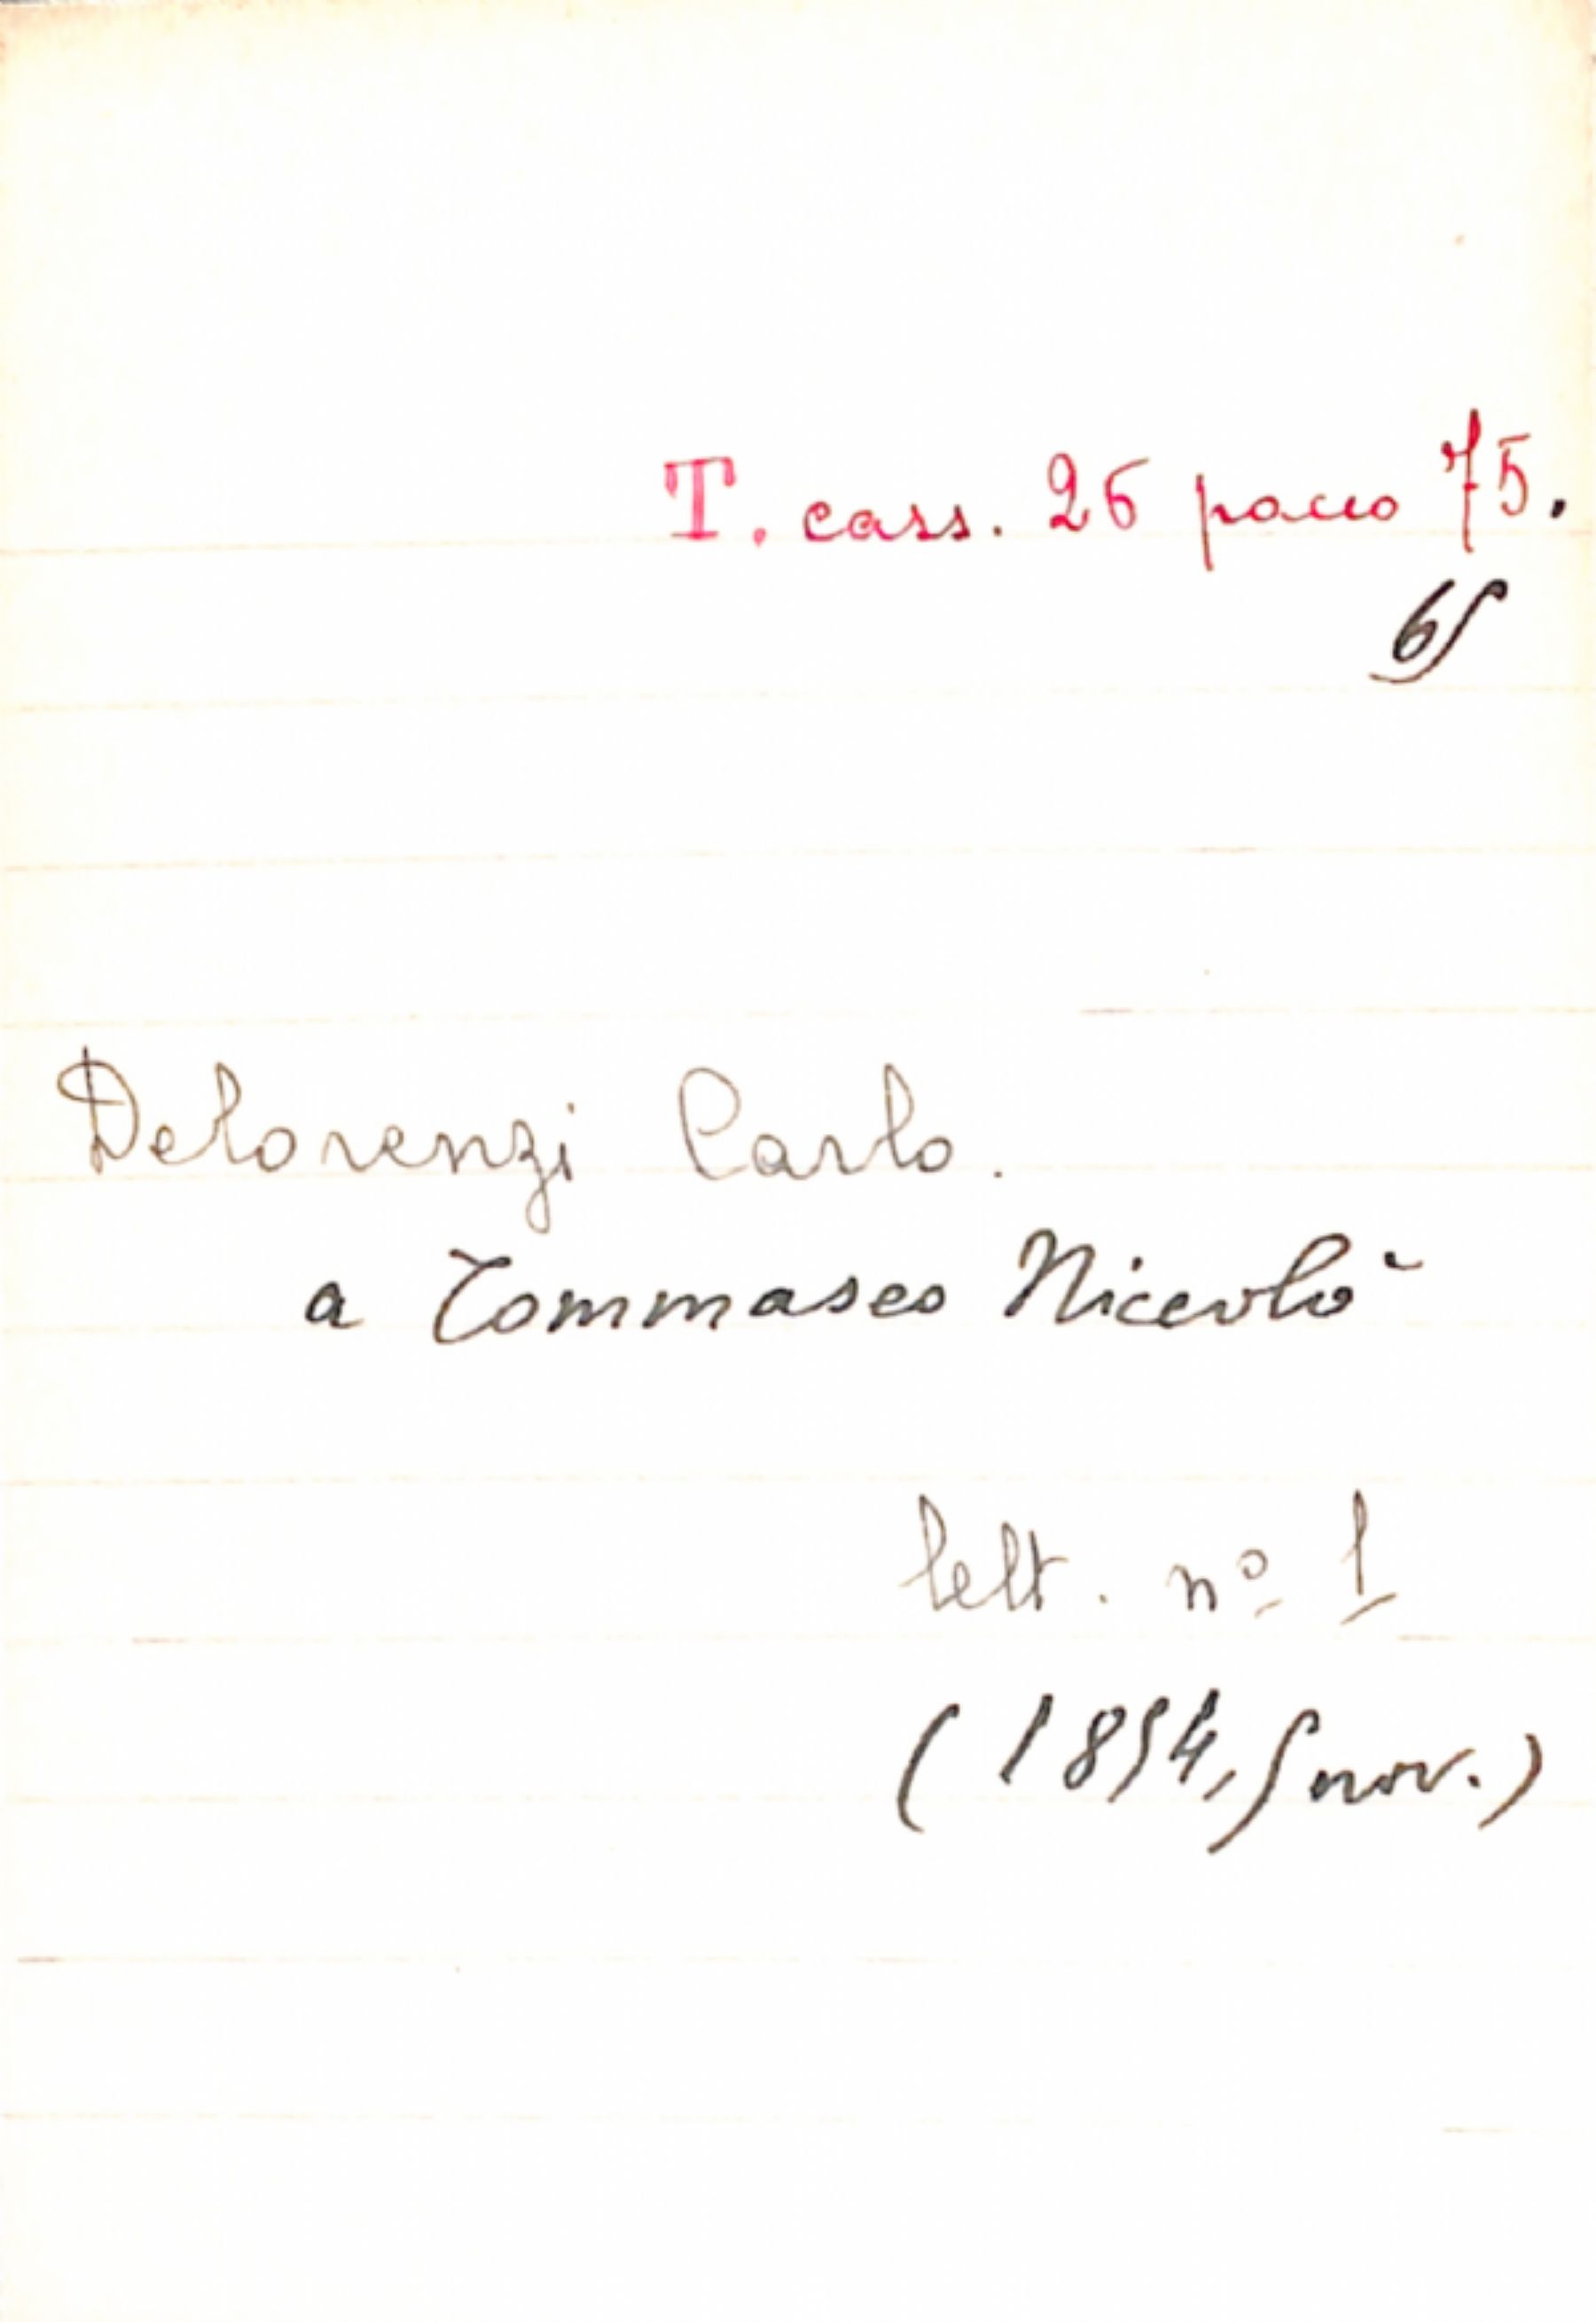 T. cass. 26 pacco 75.
65
Delorenzi Carlo.
a Tommaseo Niccolò
lett. nº 1
(1854, 5 nov.)